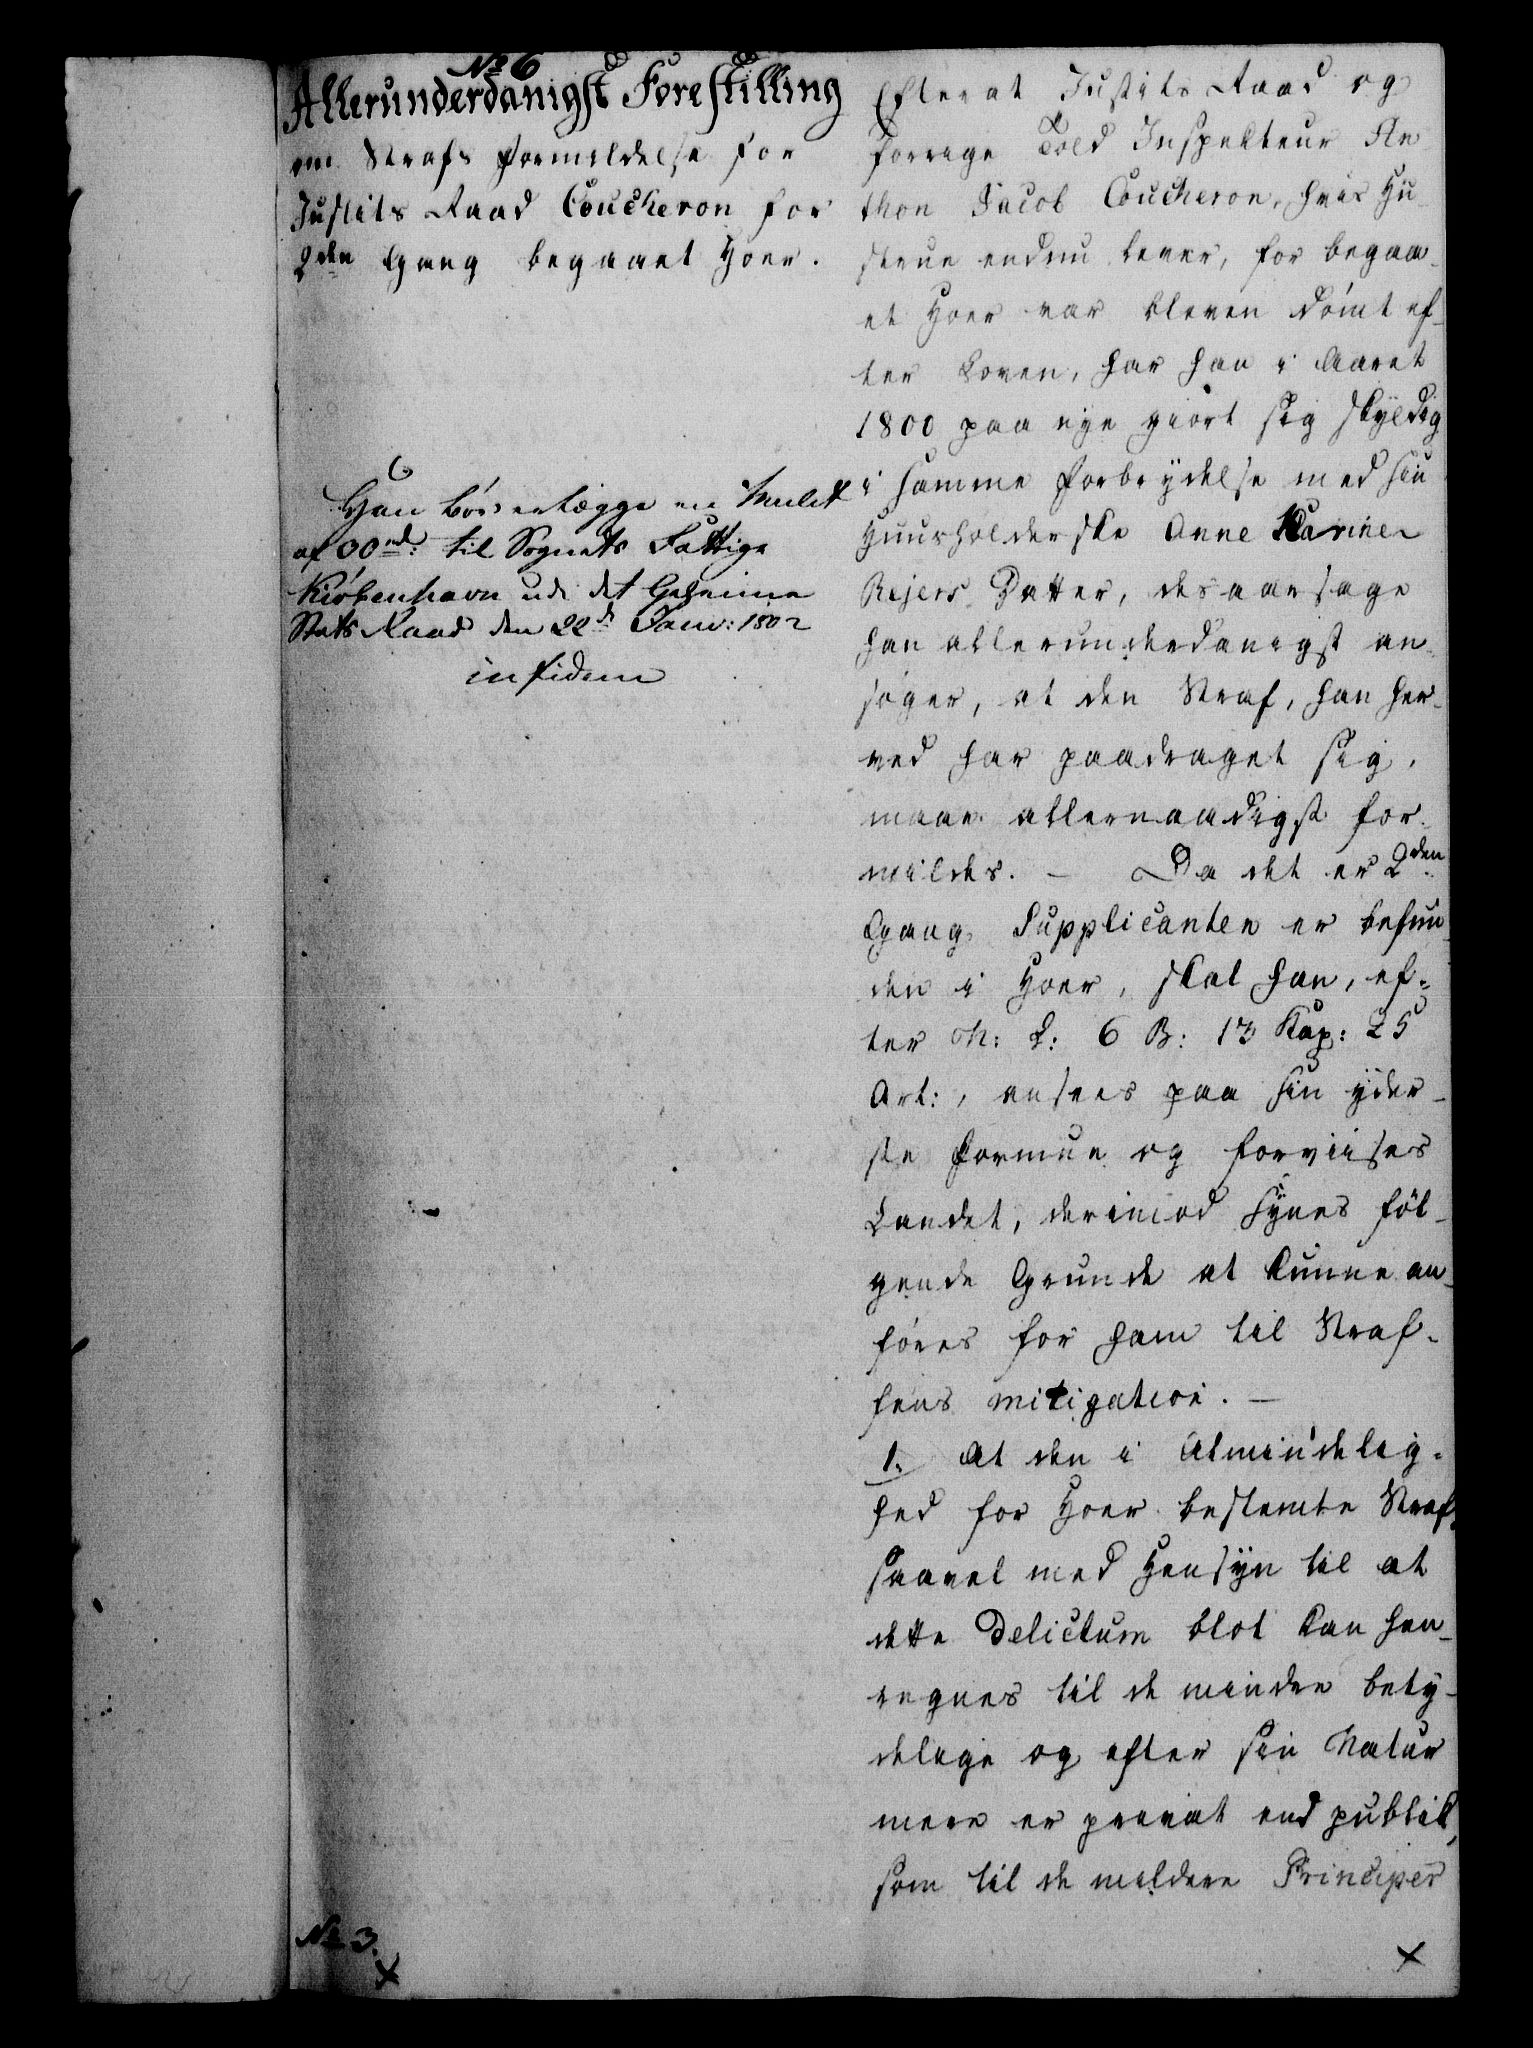 No 6
Allerunderdanigst Forestilling
om Strafs Formildelse for
Justits Raad Coucheron for
2den Gang begaaet Hoer.
Han bör erlægge en Mulct
af 00 rd: til Sognets Fattige
Kiöbenhavn udi det Geheime
Stats Raad den 22de Janv: 1802
in fidem
No 3.
Efterat Justits Raad og
forrige Told Inspekteur An
thon Jacob Coucheron, hvis Hu
strue endnu lever, for begaa
et Hoer var bleven dömt ef
ter Loven, har han i Aaret
1800 paa nye giort sig skyldig
i samme Forbrydelse med sin
Huusholderske Anne Karine
Rejers Datter, desaarsage
han allerunderdanigst an
söger, at den Straf, han her
ved har paadraget sig,
maae allernaadigst for
mildes. - Da det er 2den
Gang Supplicanten er befun
den i Hoer, skal han, ef
ter N: L: 6 B: 13 Kap: 25
Art:, ansees paa sin yder
ste Formue og forviises
Landet, derimod synes föl
gende Grunde at kunne an
föres for ham til Straf
fens mitigation. -
1. At den i Almindelig
hed for Hoer bestemte Straf,
saavel med Hensyn til at
dette Delictum blot kan hen
regnes til de mindre bety
delige og efter sin Natur
mere er privat end publik,
som til de mildere Principer